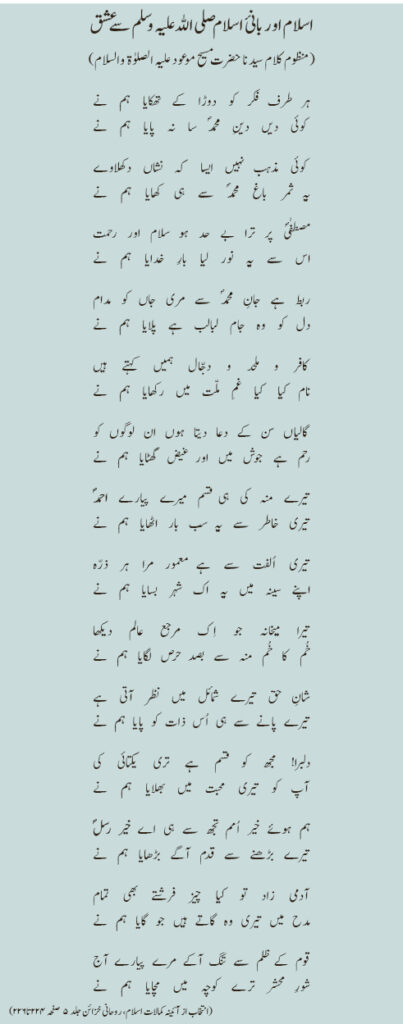 اسلام اور بانیٔ اسلام صلی اللہ علیہ وسلم سے عشق
(منظوم کلام سیدنا حضرت مسیح موعود علیہ الصلوٰۃ والسلام)
ہر طرف فکر کو دوڑا کے تھکایا ہم نے
کوئی دیں دینِ محمدؐ سا نہ پایا ہم نے
کوئی مذہب نہیں ایسا کہ نشاں دکھلاوے
یہ ثمر باغِ محمدؐ سے ہی کھایا ہم نے
مصطفیٰؐ پر ترا بے حد ہو سلام اور رحمت
اس سے یہ نور لیا بارِ خدایا ہم نے
ربط ہے جانِ محمدؐ سے مری جاں کو مدام
دل کو وہ جام لبالب ہے پلایا ہم نے
کافر و ملحد و دجّال ہمیں کہتے ہیں
نام کیا کیا غمِ ملّت میں رکھایا ہم نے
گالیاں سن کے دعا دیتا ہوں ان لوگوں کو
رحم ہے جوش میں اور غیض گھٹایا ہم نے
تیرے منہ کی ہی قسم میرے پیارے احمدؐ
تیری خاطر سے یہ سب بار اٹھایا ہم نے
تیری اُلفت سے ہے معمور مرا ہر ذرّہ
اپنے سینہ میں یہ اک شہر بسایا ہم نے
تیرا میخانہ جو اِک مرجع عالم دیکھا
خُم کا خُم منہ سے بصد حرص لگایا ہم نے
شانِ حق تیرے شمائل میں نظر آتی ہے
تیرے پانے سے ہی اُس ذات کو پایا ہم نے
دلبرا! مجھ کو قسم ہے تری یکتائی کی
آپ کو تیری محبت میں بھلایا ہم نے
ہم ہوئے خیر اُمم تجھ سے ہی اے خیر رسلؐ
تیرے بڑھنے سے قدم آگے بڑھایا ہم نے
آدمی زاد تو کیا چیز فرشتے بھی تمام
مدح میں تیری وہ گاتے ہیں جو گایا ہم نے
قوم کے ظلم سے تنگ آکے مرے پیارے آج
شورِ محشر ترے کوچہ میں مچایا ہم نے
(انتخاب از آئینہ کمالات اسلام، روحانی خزائن جلد ۵ صفحہ ۲۲۴ تا ۲۲۶)